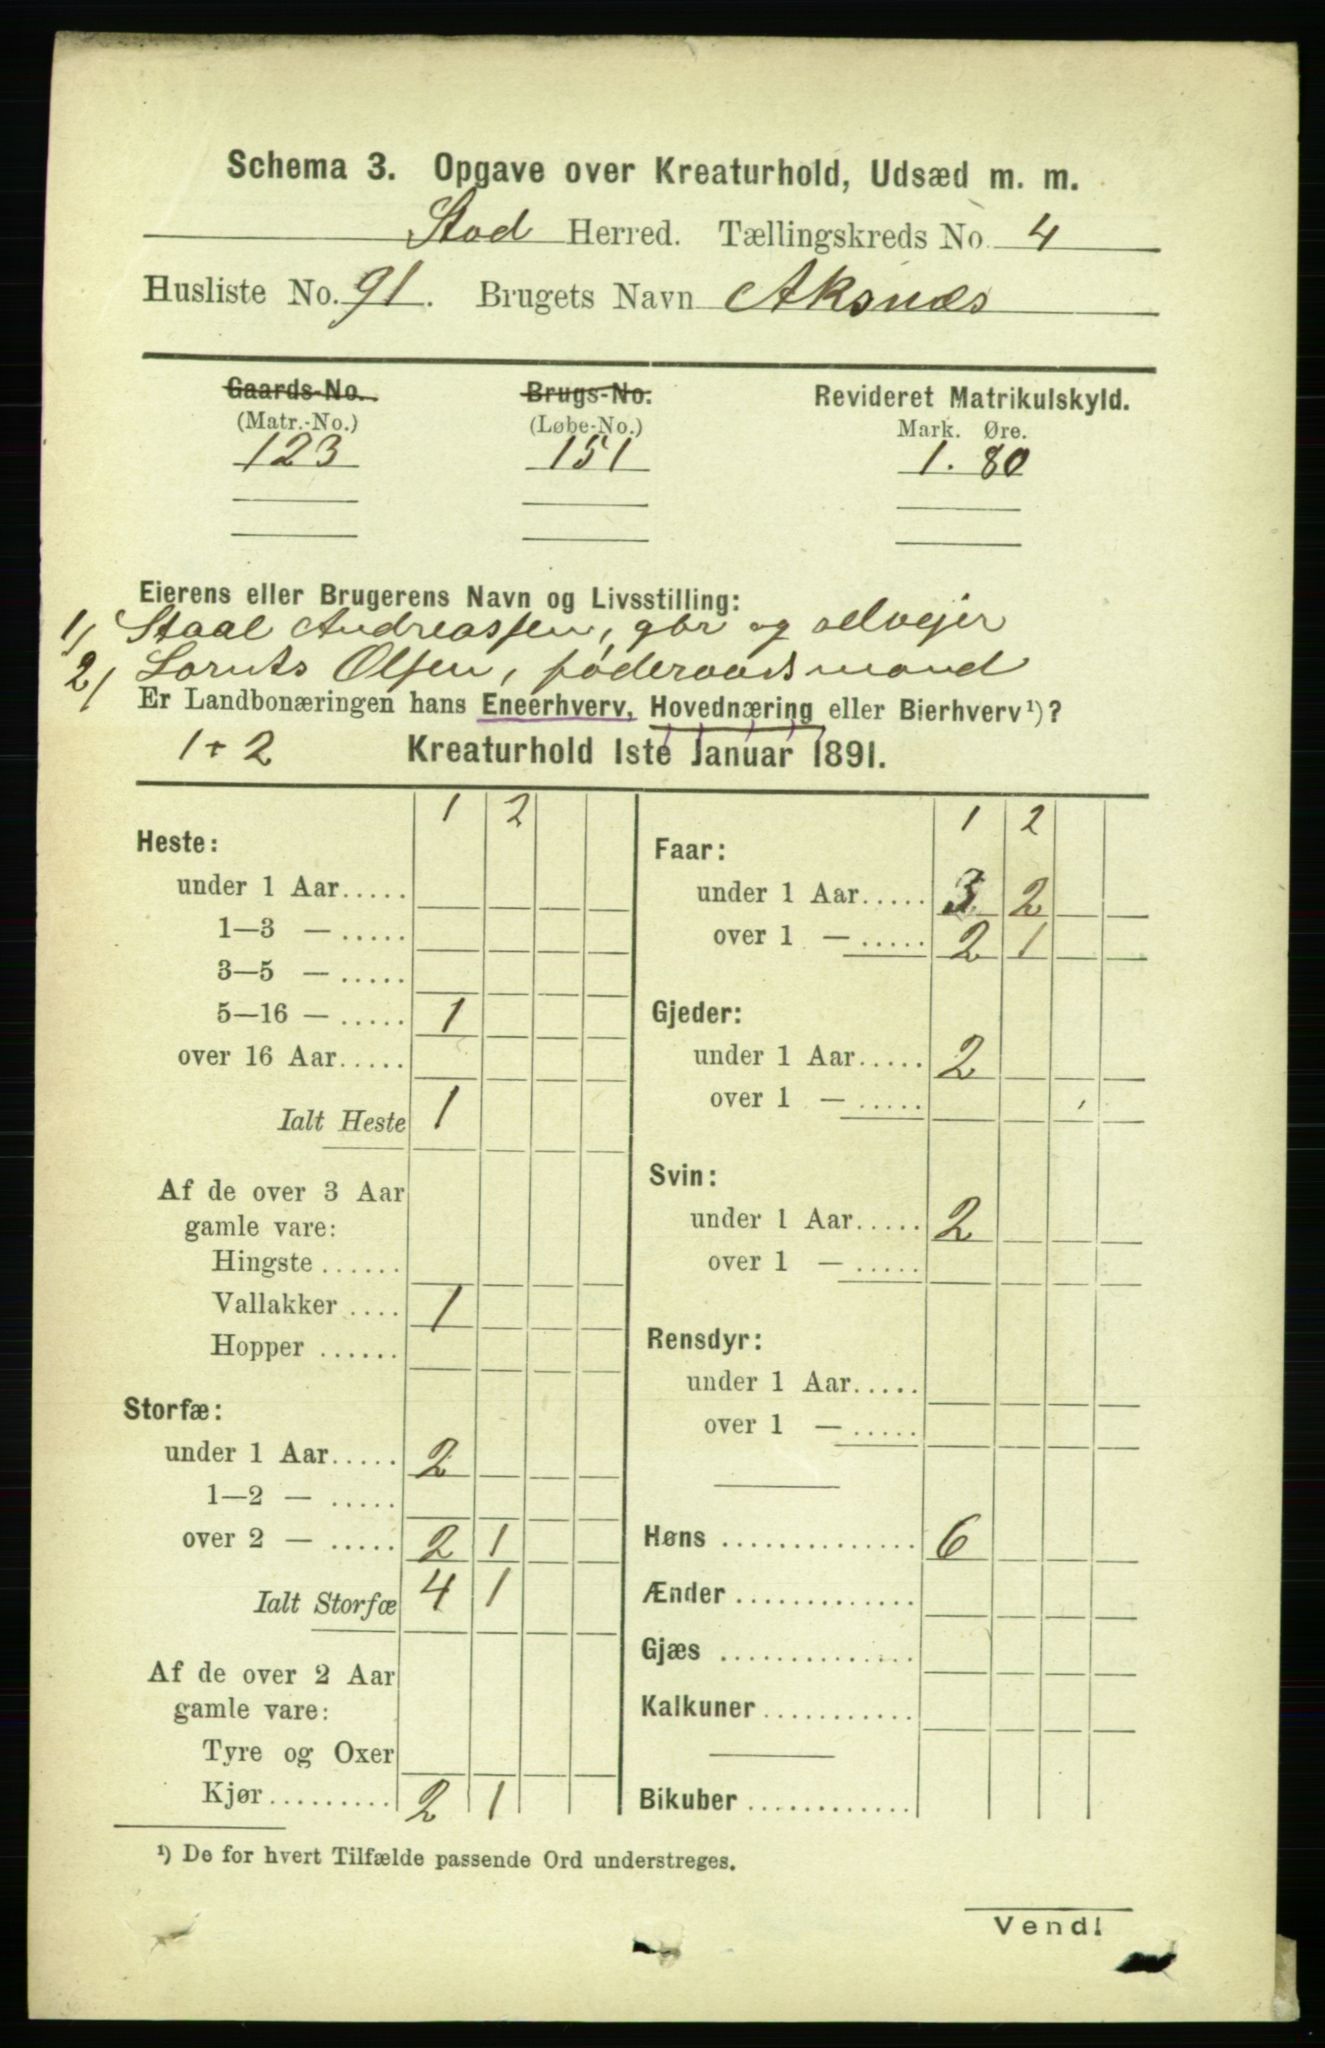 Schema 3. Opgave over Kreaturhold, Udsæd m. m.
Stod Herred. Tællingskreds No. 4
Husliste No. 91. Brugets Navn Aksnæs
Gaards-No. Brugs-No. Revideret Matrikulskyld.
(Matr.-No.) (Løbe-No.) Mark. Øre.
123 151 1. 80
Eierens eller Brugerens Navn og Livsstilling:
1/ Staal Andreassen, gbr og selvejer
2/ Lornts Olsen, føderaadsmand
Er Landbonæringen hans Eneerhverv, Hovednæring eller Bierhverv¹)?
1 + 2 Kreaturhold 1ste Januar 1891.
1 2
Heste:
under 1 Aar.....
1—3 — .....
3—5 — .....
5—16 — ..... 1
over 16 Aar.....
Ialt Heste 1
Af de over 3 Aar
gamle vare:
Hingste ......
Vallakker .... 1
Hopper ......
Storfæ:
under 1 Aar..... 2
1—2 — .....
over 2 — ..... 2 1
Ialt Storfæ 4 1
Af de over 2 Aar
gamle vare:
Tyre og Oxer
Kjør......... 2 1
1 2
Faar:
under 1 Aar..... 3 2
over 1 — ..... 2 1
Gjeder:
under 1 Aar..... 2
over 1 — .....
Svin:
under 1 Aar..... 2
over 1 — .....
Rensdyr:
under 1 Aar.....
over 1 — .....
Høns .............. 6
Ænder .............
Gjæs ..............
Kalkuner...........
Bikuber ............
¹) De for hvert Tilfælde passende Ord understreges.
Vend!